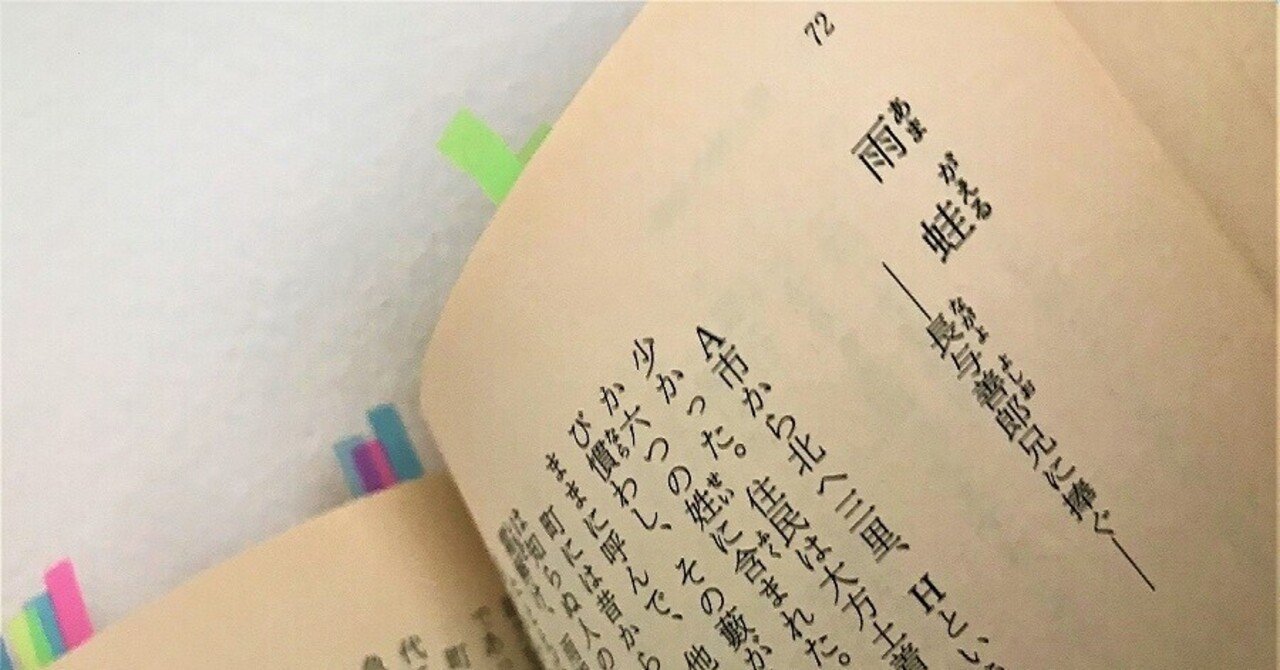 72
雨蛙
あまがえる
――長与善郎兄に捧ぐ――
ながよ よしお
A市から北へ三里、Hとい
少かった。住民は大方土着
か六つの姓に含まれた。
び慣わし、その藪か
ままに呼んで、他
町には昔から
は知らぬ人の
代
町